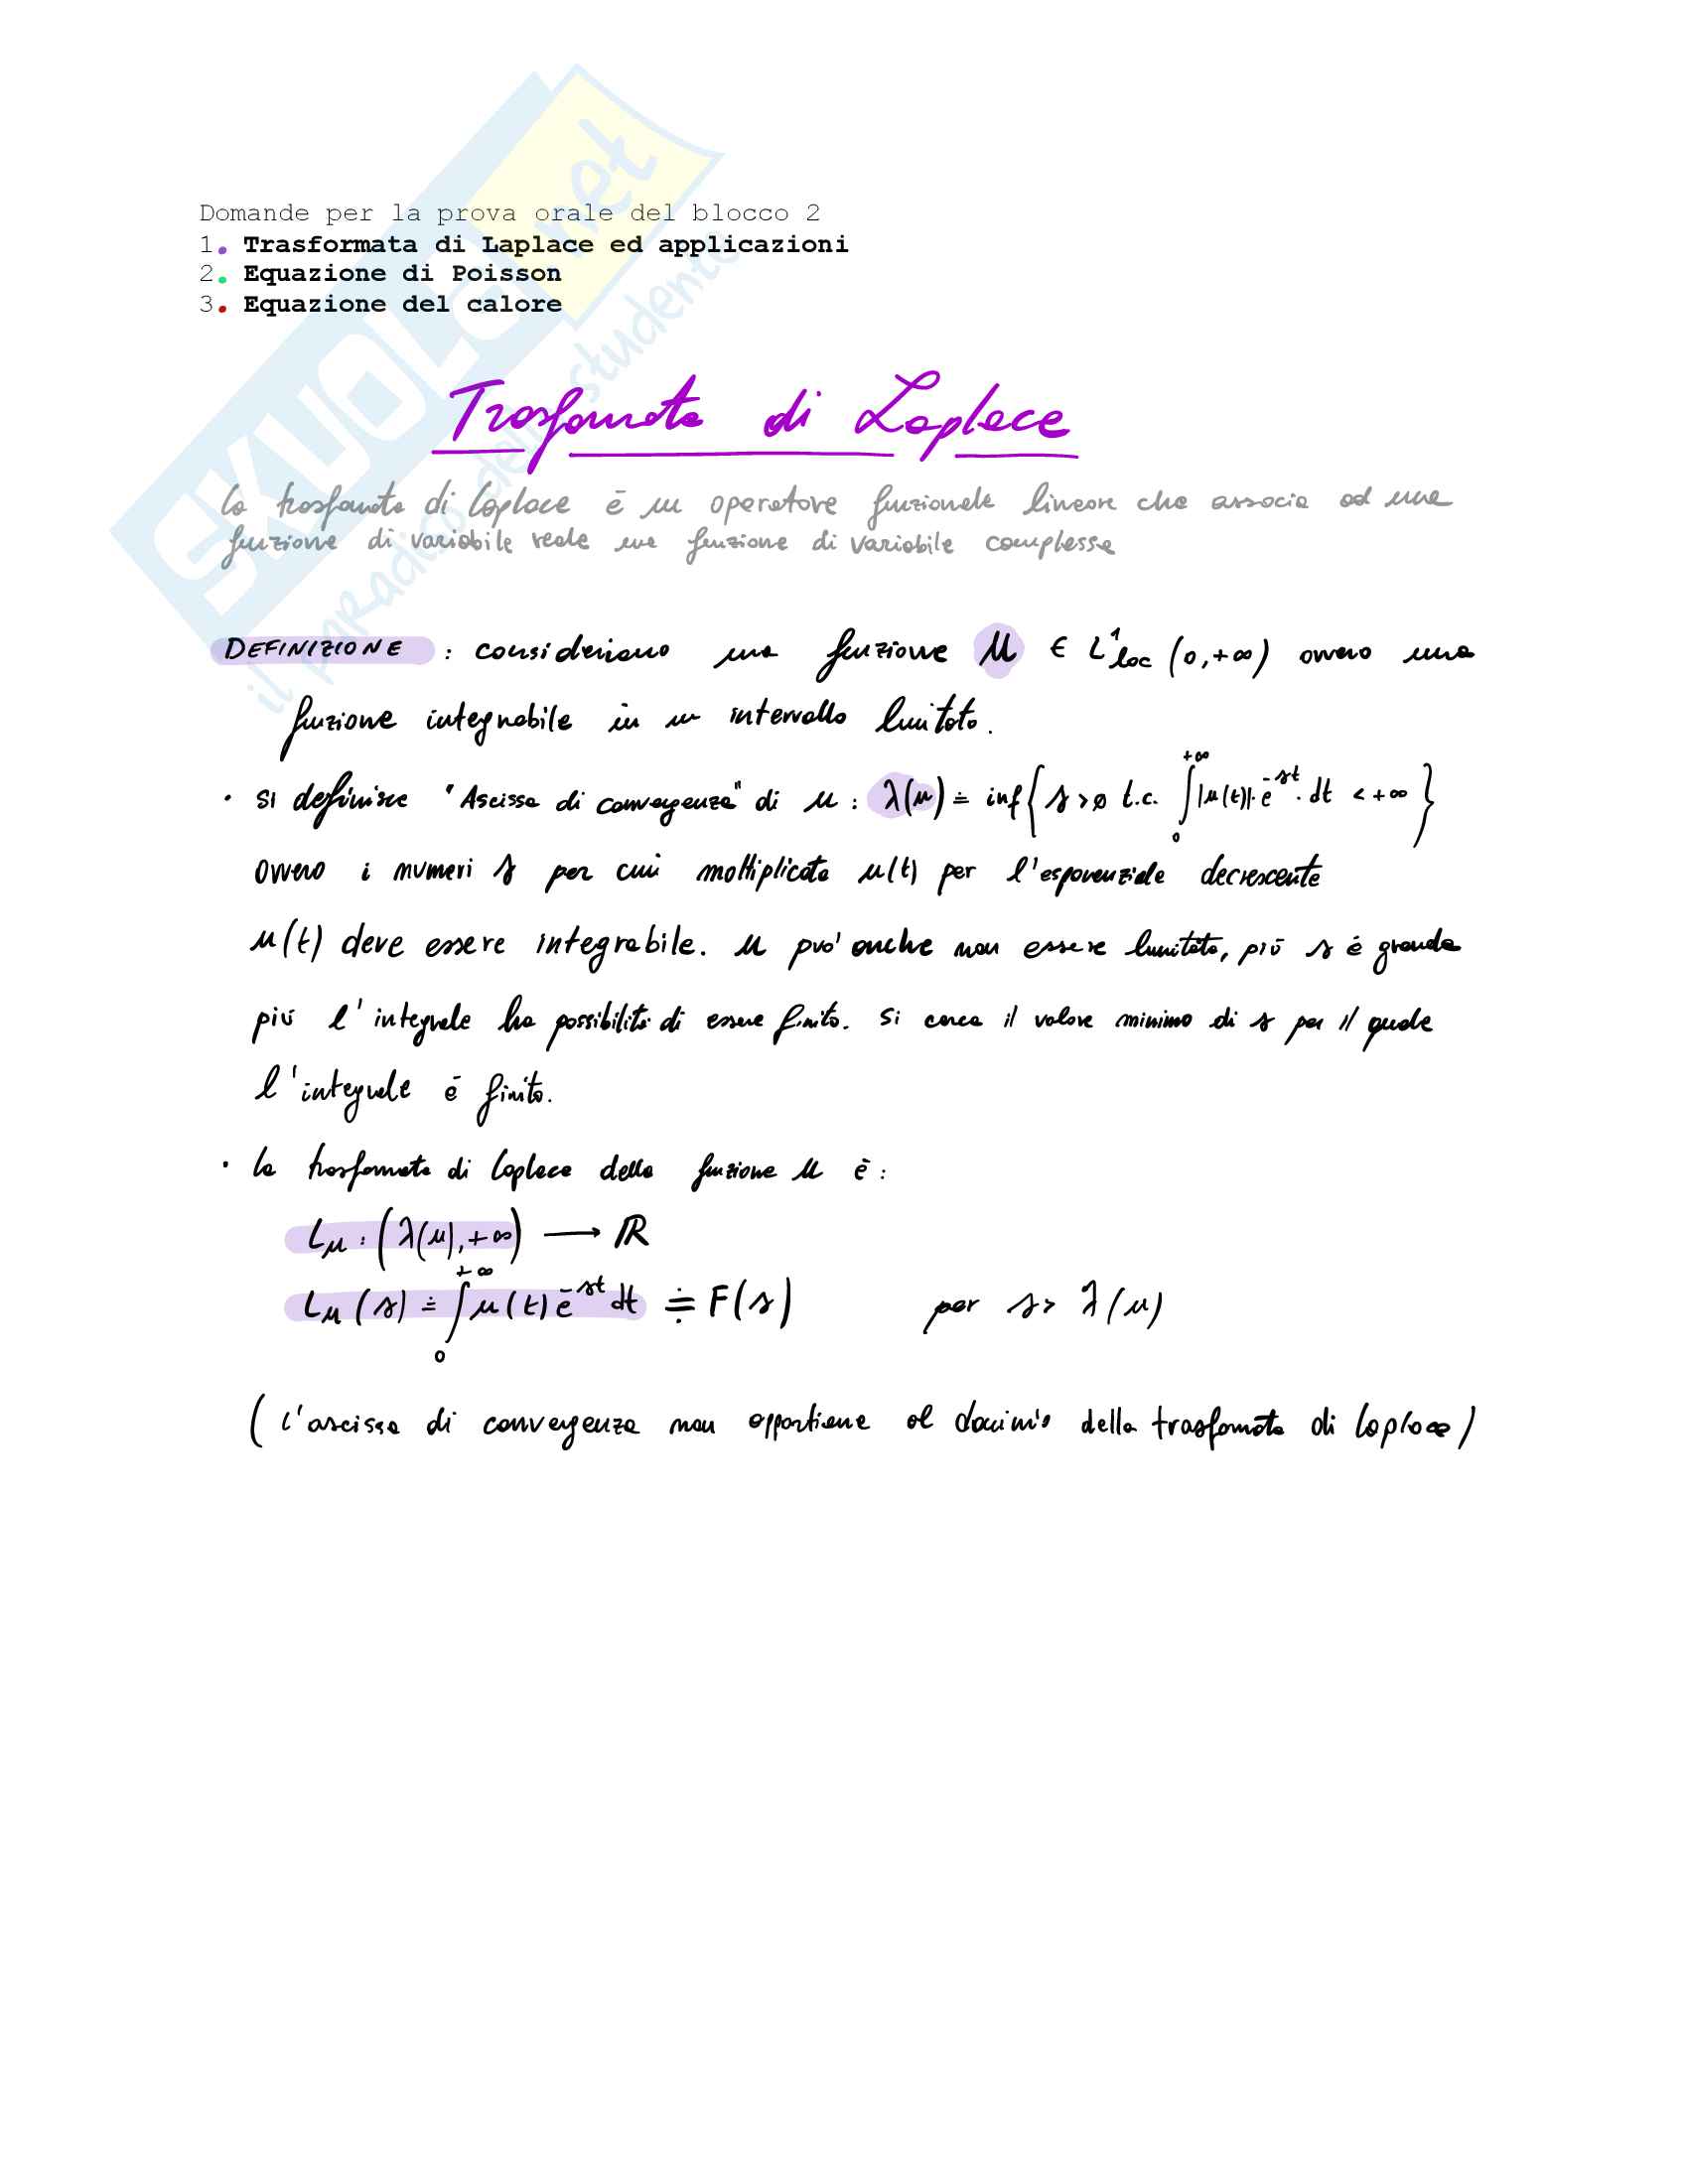 SKUOLA.net
il paradiso dello studente
Domande per la prova orale del blocco 2
1. Trasformata di Laplace ed applicazioni
2. Equazione di Poisson
3. Equazione del calore
Trasformata di Laplace
la trasformata di Laplace è un operatore funzionale lineare che associa ad una
funzione di variabile reale una funzione di variabile complessa
DEFINIZIONE : consideriamo una funzione u ∈ L¹loc (0,+∞) ovvero una
funzione integrabile in un intervallo limitato.
• si definisce "Ascissa di convergenza" di u : λ(u) ≐ inf{ s>0 t.c. ∫₀^{+∞} |u(t)|·e^{-st}·dt < +∞ }
ovvero i numeri s per cui moltiplicata u(t) per l'esponenziale decrescente
u(t) deve essere integrabile. u può anche non essere limitata, più s è grande
più l'integrale ha possibilità di essere finito. Si cerca il valore minimo di s per il quale
l'integrale è finito.
• la trasformata di Laplace della funzione u è :
Lu : (λ(u),+∞) → ℝ
Lu (s) ≐ ∫₀^{+∞} u(t) e^{-st} dt ≑ F(s) per s> λ(u)
( l'ascissa di convergenza non appartiene al dominio della trasformata di Laplace)